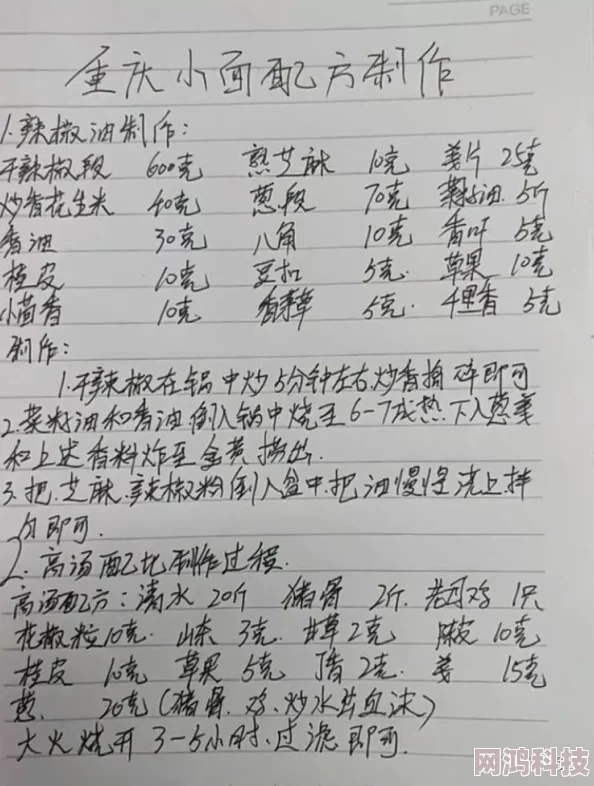 PAGE
重庆小面配方制作
1.辣椒油制作:
干辣椒段 600克 熟芝麻 10克 姜片 25克
炒香花生米 40克 葱段 70克 菜籽油 5斤
香油 30克 八角 10克 香叶 5克
桂皮 10克 豆扣 5克 草果 10克
小茴香 10克 香茅草 5克 千里香 5克
制作:
1.干辣椒在锅中炒5分钟左右,炒香捣碎即可
2.菜籽油和香油倒入锅中烧至6-7成热下入葱姜
和上述香料炸至金黄捞出.
3.把芝麻.辣椒粉倒入盆中.把油慢慢浇上拌
匀即可.
2.高汤配比制作过程.
高汤配方:清水20斤 猪骨 2斤.老母鸡 1只
花椒粒10克. 山奈 3克. 甘草2克 陈皮10克
桂皮 10克 草果 5克 丁香 2克. 姜 15克
葱. 20克(猪骨.鸡.炒水去血沫)
大火烧开3-5小时.过滤即可.
网鸿科技